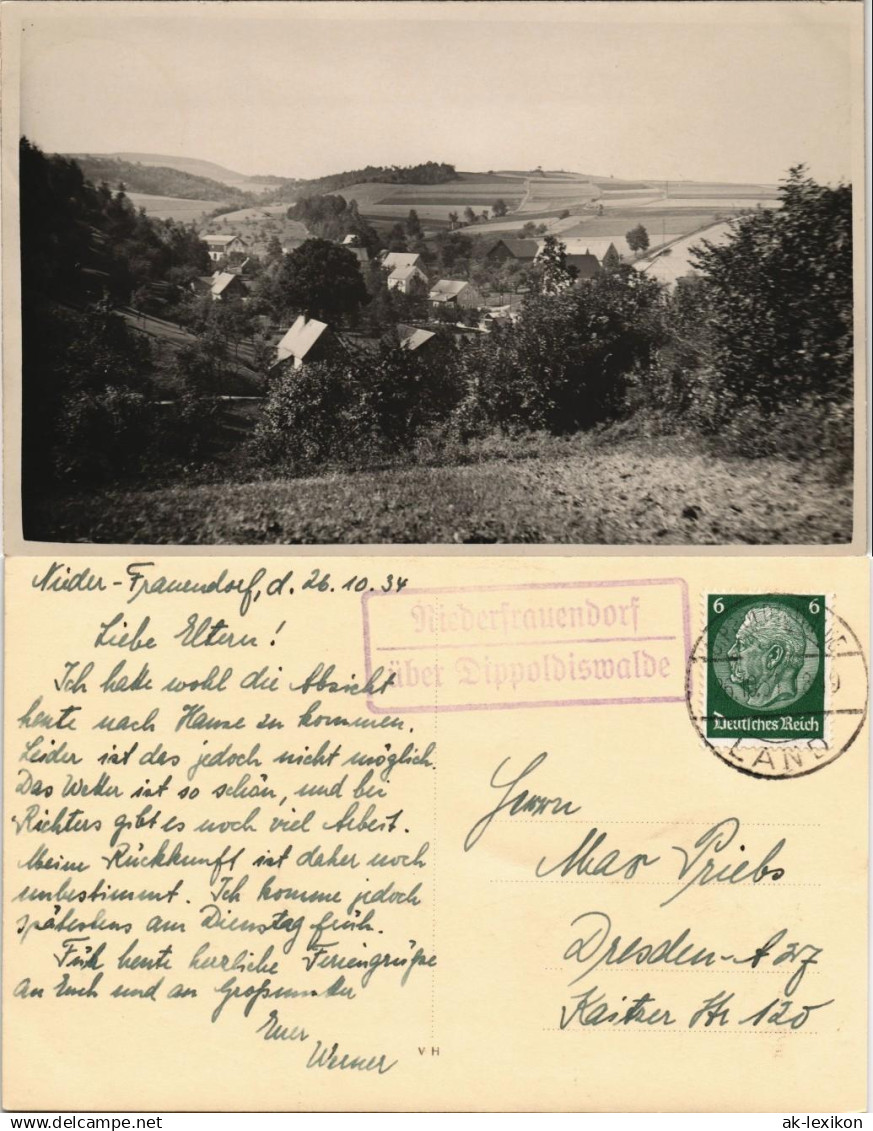 Nieder-Frauendorf, d. 26.10.34
Liebe Eltern!
Ich hatte wohl die Absicht
heute nach Hause zu kommen.
Leider ist das jedoch nicht möglich.
Das Wetter ist so schön, und bei
Richters gibt es noch viel Arbeit.
Meine Rückkunft ist daher noch
unbestimmt. Ich komme jedoch
spätestens am Dienstag früh.
Für heute herzliche Feriengrüße
an Euch und an Großmutter
Euer
Werner
Niederfrauendorf
über Dippoldiswalde
6 6
Deutsches Reich
LAND
Herrn
Max Priebs
Dresden-A 27
Kaitzer Str 120
VH
ak-lexikon